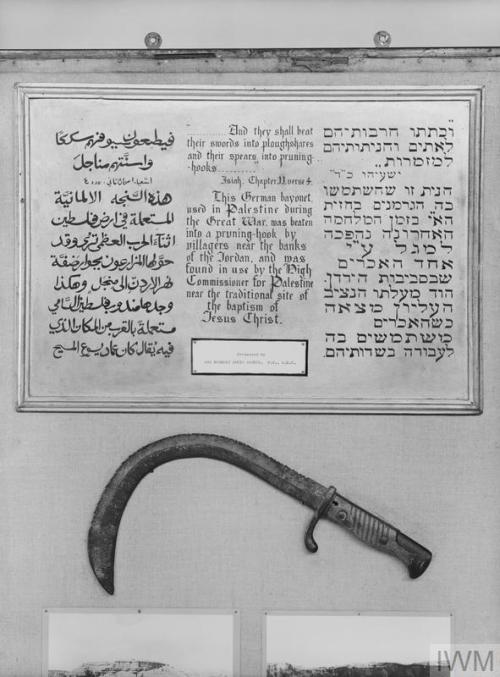 فيطبعون سيوفهم سككا
واسنتهم مناجل
هذه السنجة الالمانية
المستعملة في ارض فلسطين
اثناء الحرب العظمى وقد
حولها المزارعون بجوار ضفة
نهر الاردن الى منجل وهكذا
وجدها مندوب فلسطين السامي
مستعملة بالقرب من المكان الذي
فيه يقال كان عماد يسوع المسيح
"............And they shall beat
their swords into ploughshares
and their spears into pruning-
-hooks............"
Isiah. Chapter II. verse 4.
This German bayonet,
used in Palestine during
the Great War, was beaten
into a pruning-hook by
villagers near the banks
of the Jordan, and was
found in use by the High
Commissioner for Palestine
near the traditional site of
the baptism of
Jesus Christ.
Presented by
"וכתתו חרבותיהם
לאתים וחניתותיהם
למזמרות"..
ישעיהו כ"ד"
חנית זו שהשתמשו
בה הגרמנים בחזית
הא"י בזמן המלחמה
האחרונה נהפכה
למגל ע"י
אחד האכרים
שבסביבות הירדן.
הוד מעלתו הנציב
העליון מצאה
כשהאכרים
משתמשים בה
לעבודה בשדותיהם.
IWM